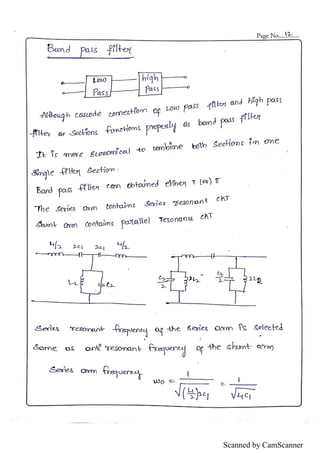 Page No....12.....
Band pass filter
Low
Pass
high
Pass
Although cascade connection of Low pass filter and high pass
filter or sections functions properly as band pass filter
It is more Economical to combine both Sections in one
Single filter Section.
Band pass filter can obtained either T (or) π
The Series arm Contains Series resonant CKT
Shunt arm contains parallel resonance CKT
L1/2 2C1 2C1 L1/2
L2 C2
C2/2 2L2 C2/2 2L2
Series resonant frequency of the series arm is selected
Same as anti resonant frequency of the shunt arm
Series arm frequency
ω0 = 1/√(L1/2)2C1 = 1/√L1C1
Scanned by CamScanner